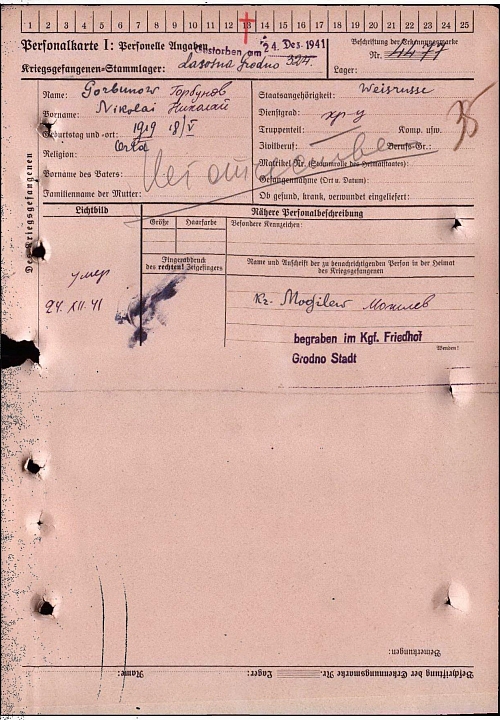 1 2 3 4 5 6 7 8 9 10 11 12 13 14 15 16 17 18 19 20 21 22 23 24 25
Personalkarte I: Personelle Angaben
Verstorben am 24. Dez. 1941
Beschriftung der Erkennungsmarke
Nr. 4477
Kriegsgefangenen-Stammlager: Lasosna Grodno 324.
Lager:
Des Kriegsgefangenen
Name: Gorbunow Горбунов
Vorname: Nikolai Николай
Geburtstag und -ort: 1919 18/V
Religion:
Vorname des Vaters:
Familienname der Mutter:
Staatsangehörigkeit: Weisrusse
Dienstgrad:
Truppenteil: Komp. usw.
Zivilberuf: Berufs-Gr.:
Matrikel Nr. (Stammrolle des Heimatstaates):
Gefangennahme (Ort u. Datum):
Ob gesund, krank, verwundet eingeliefert:
Lichtbild
Nähere Personalbeschreibung
Größe Haarfarbe Besondere Kennzeichen:
Fingerabdruck
des rechten! Zeigefingers
Name und Anschrift der zu benachrichtigenden Person in der Heimat
des Kriegsgefangenen
умер
24. XII. 41
Kr. Mogilew Могилев
begraben im Kgf. Friedhof
Grodno Stadt
Wenden!
Bemerkungen:
Beschriftung der Erkennungsmarke Nr. Lager: Name: